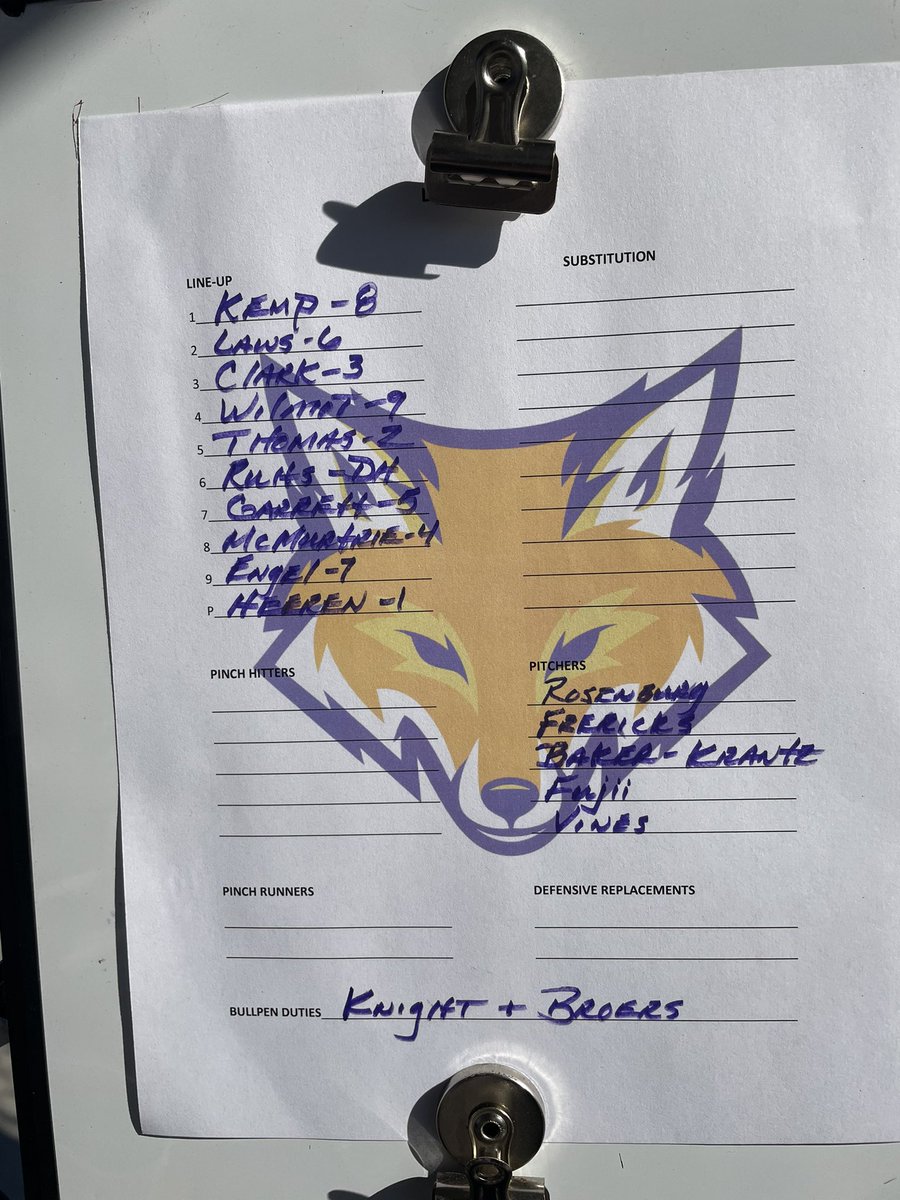 SUBSTITUTION
LINE-UP
1 KEMP - 8
2 LAWS - 6
3 ClARK - 3
4 - 9
5 THOMAS - 2
6 - DH
7 GARREtt - 5
8 McMURTRIE - 4
9 ENgEl - 7
P HEEREN - 1
PINCH HITTERS
PITCHERS
ROSENBURG
FRERICKS
BAKER - KRANTZ
Fujii
VINES
PINCH RUNNERS
DEFENSIVE REPLACEMENTS
BULLPEN DUTIES KNigHT + BROERS